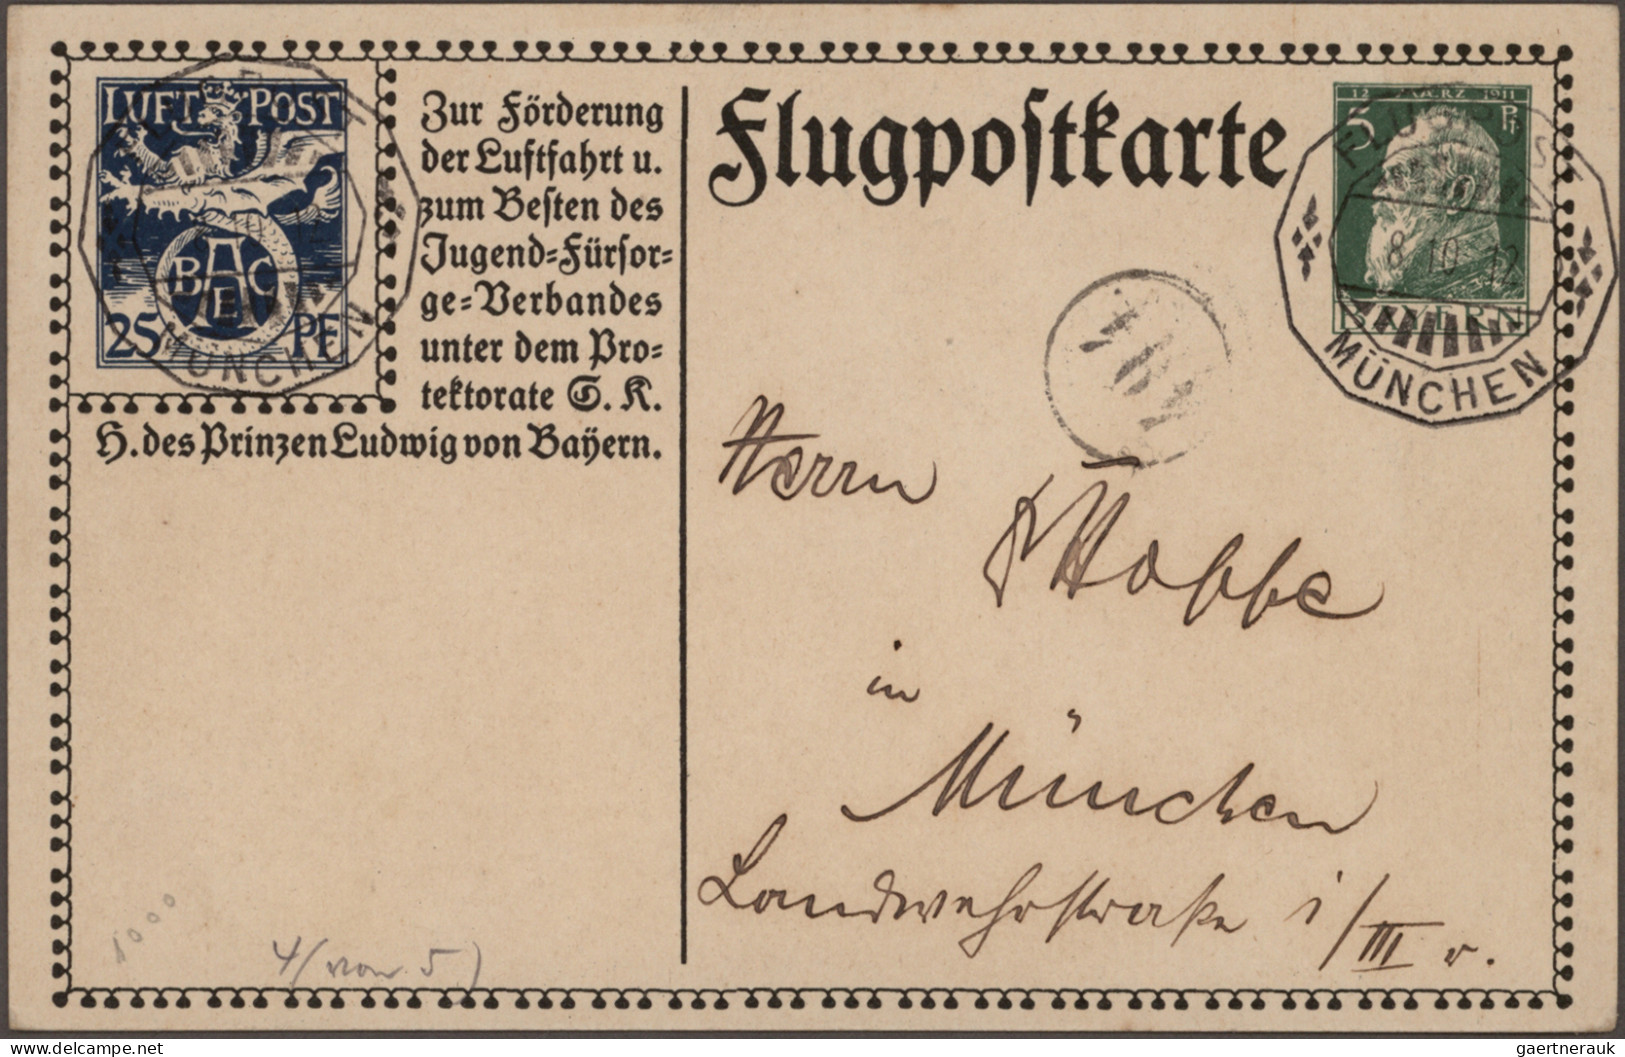 LUFT POST
BAEC
25 PF
MÜNCHEN
Zur Förderung
der Luftfahrt u.
zum Besten des
Jugend=Fürsor=
ge=Verbandes
unter dem Pro=
tektorate S. K.
H. des Prinzen Ludwig von Bayern.
Flugpostkarte
12 MAERZ 1911
5 Pf.
BAYERN
FLUGPOST
8 10 12
MÜNCHEN
Herrn
Hoppe
in
München
Landwehrstraße 1/III r.
1000
4 (von 5)
delcampe.net
gaertnerauk